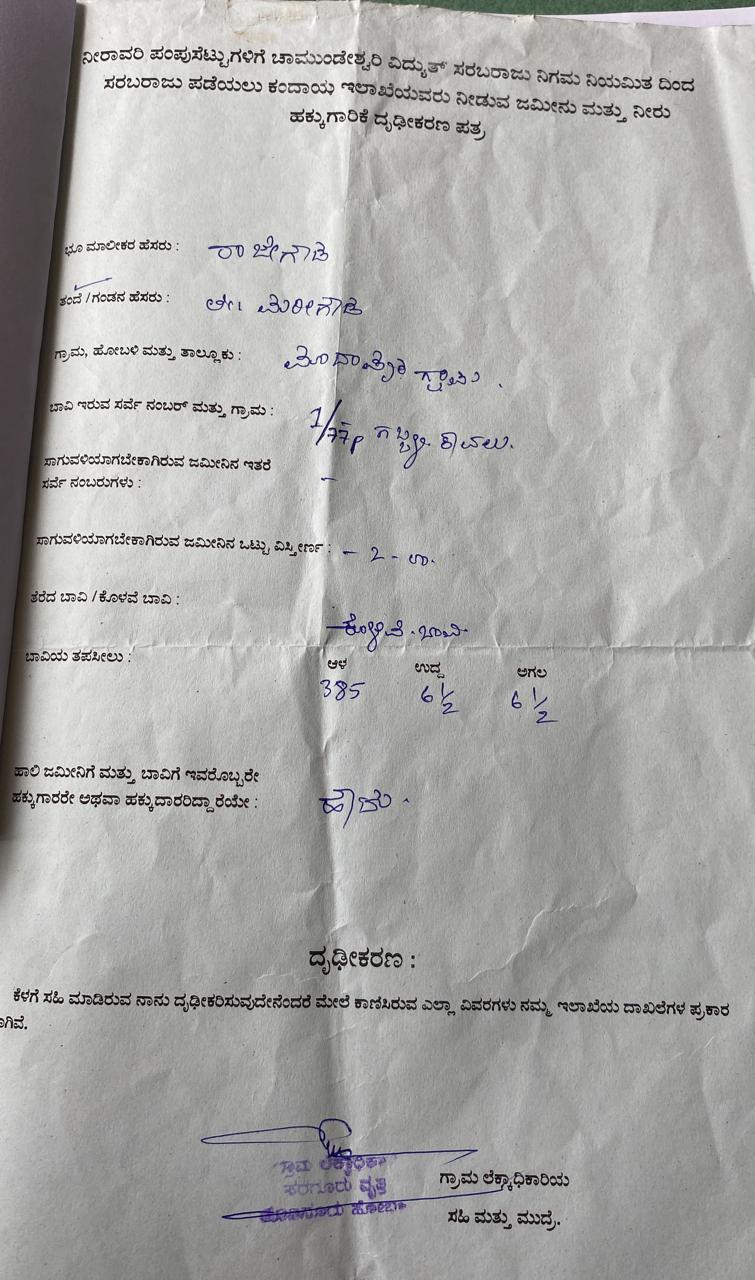 ನೀರಾವರಿ ಪಂಪುಸೆಟ್ಟುಗಳಿಗೆ ಚಾಮುಂಡೇಶ್ವರಿ ವಿದ್ಯುತ್ ಸರಬರಾಜು ನಿಗಮ ನಿಯಮಿತ ದಿಂದ
ಸರಬರಾಜು ಪಡೆಯಲು ಕಂದಾಯ ಇಲಾಖೆಯವರು ನೀಡುವ ಜಮೀನು ಮತ್ತು ನೀರು
ಹಕ್ಕುಗಾರಿಕೆ ದೃಢೀಕರಣ ಪತ್ರ
ಭೂ ಮಾಲೀಕರ ಹೆಸರು : ರಾಜೇಗೌಡ
ತಂದೆ / ಗಂಡನ ಹೆಸರು : ಲೇ। ಮರೀಗೌಡ
ಗ್ರಾಮ, ಹೋಬಳಿ ಮತ್ತು ತಾಲ್ಲೂಕು : ಗ್ರಾಮ .
ಬಾವಿ ಇರುವ ಸರ್ವೆ ನಂಬರ್ ಮತ್ತು ಗ್ರಾಮ : 1/77P ಕಾವಲು.
ಸಾಗುವಳಿಯಾಗಬೇಕಾಗಿರುವ ಜಮೀನಿನ ಇತರೆ
ಸರ್ವೆ ನಂಬರುಗಳು : -
ಸಾಗುವಳಿಯಾಗಬೇಕಾಗಿರುವ ಜಮೀನಿನ ಒಟ್ಟು ವಿಸ್ತೀರ್ಣ : - 2 -
ತೆರೆದ ಬಾವಿ / ಕೊಳವೆ ಬಾವಿ : ಕೊಳವೆ. ಬಾವಿ
ಬಾವಿಯ ತಪಸೀಲು : ಆಳ ಉದ್ದ ಅಗಲ
385 6 1/2 6 1/2
ಹಾಲಿ ಜಮೀನಿಗೆ ಮತ್ತು ಬಾವಿಗೆ ಇವರೊಬ್ಬರೇ
ಹಕ್ಕುಗಾರರೇ ಅಥವಾ ಹಕ್ಕುದಾರರಿದ್ದಾರೆಯೇ : ಹೌದು .
ದೃಢೀಕರಣ :
ಕೆಳಗೆ ಸಹಿ ಮಾಡಿರುವ ನಾನು ದೃಢೀಕರಿಸುವುದೇನೆಂದರೆ ಮೇಲೆ ಕಾಣಿಸಿರುವ ಎಲ್ಲಾ ವಿವರಗಳು ನಮ್ಮ ಇಲಾಖೆಯ ದಾಖಲೆಗಳ ಪ್ರಕಾರ
ಗ್ರಾಮ ಲೆಕ್ಕಾಧಿಕಾರಿ
ಸರಗೂರು ವೃತ್ತ
ಗ್ರಾಮ ಲೆಕ್ಕಾಧಿಕಾರಿಯ
ಸಹಿ ಮತ್ತು ಮುದ್ರೆ.